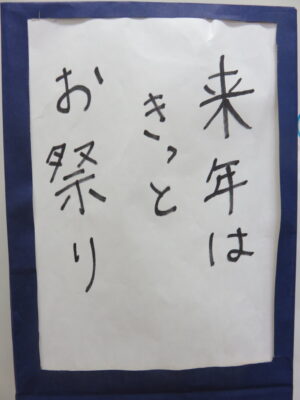 来年は
きっと
お祭り